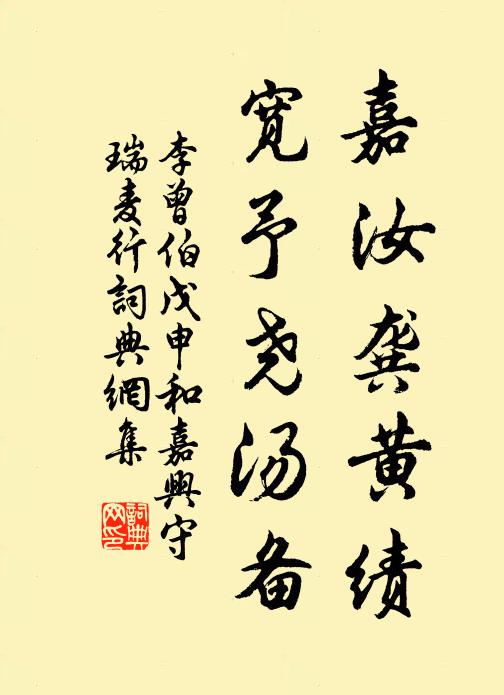 嘉汝龚黄绩
宽予尧汤备
李曾伯戊申和嘉興守
瑞麦行詞典網集
詞典
网印